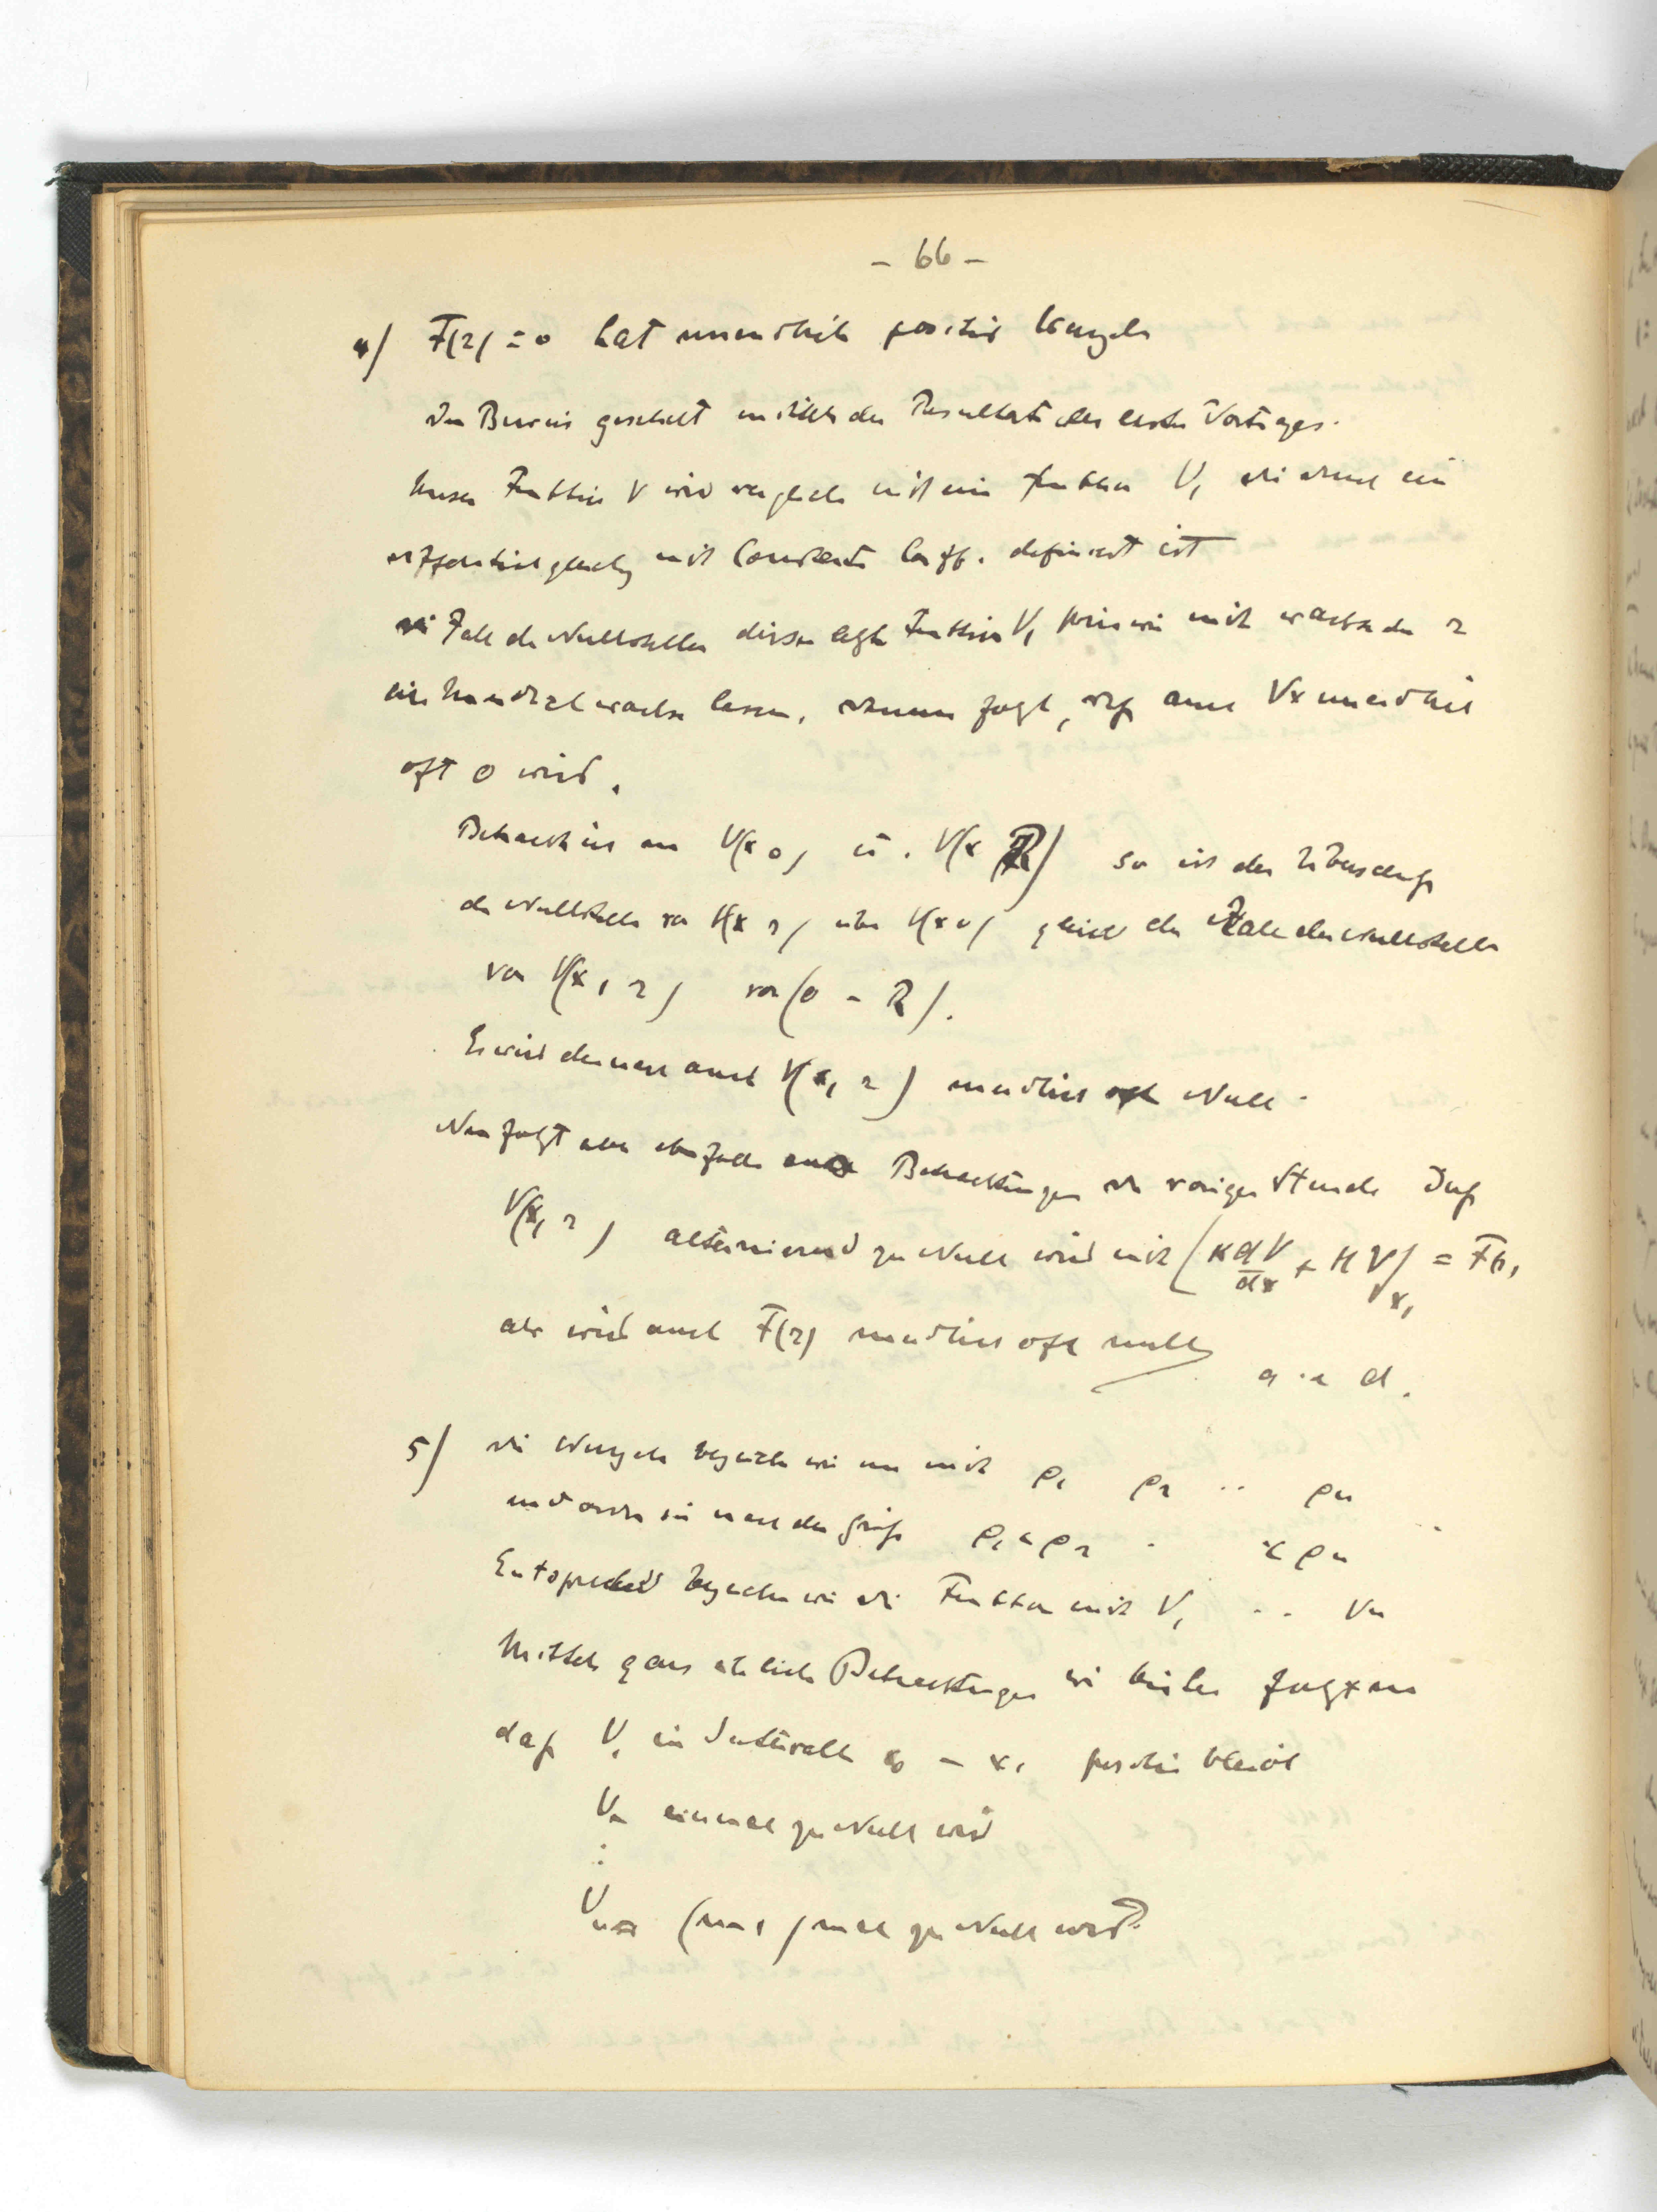 - 66 -
4) F(r) = 0 hat unendlich positive Wurzeln
Der Beweis geschieht mittels der Resultate des ersten Vortrages.
Unsere Funktion V wird verglichen mit einer Funktion V, die durch eine
Differentialgleichung mit Constanten Coeff. definiert ist
Die Zahl der Nullstellen dieser Funktion V, können wir mit wachsendem r
ins Unendliche wachsen lassen, daraus folgt, daß auch Vx unendlich
oft 0 wird.
Betrachten wir V(x 0) u. V(x R) so ist der Überschuß
der Nullstellen von V(x r) über V(x 0) gleich der Zahl der Nullstellen
von V(x, r) von (0 - R).
Es wird demnach auch V(x, r) unendlich oft Null.
Nun folgt aber ebenfalls aus Betrachtungen der vorigen Stunde daß
V(x, r) alternierend zu Null wird mit (K dV/dx + H V)x₁ = F(r)
also wird auch F(r) unendlich oft null
q. e. d.
5) Die Wurzeln bezeichnen wir nun mit ρ₁ ρ₂ .. ρn
und ordnen sie nach der Größe ρ₁ < ρ₂ . < ρn
Entsprechend bezeichnen wir die Funktion mit V₁ .. Vn
Mittels ganz ähnlicher Betrachtungen wie bisher folgt nun
daß V₁ im Intervall x₀ - x₁ positiv bleibt
V₂ einmal zu Null wird
:
Vn (n-1) mal zu Null wird.